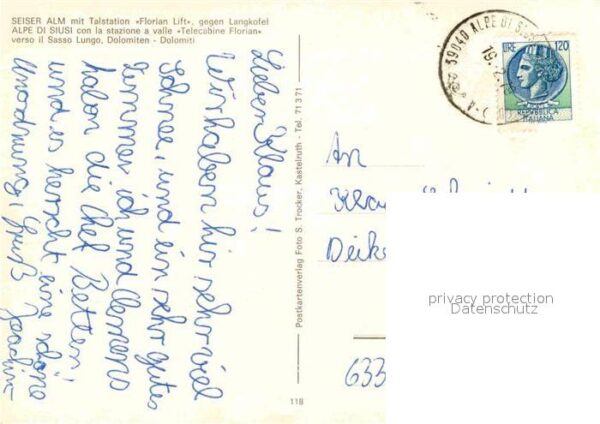 SEISER ALM mit Talstation «Florian Lift», gegen Langkofel
ALPE DI SIUSI con la stazione a valle «Telecabine Florian»
verso il Sasso Lungo, Dolomiten - Dolomiti
Lieber Klaus!
Wir haben hir sehr viel
Schnee, und ein sehr gutes
Zimmer, ich und Clemens
haben die Chef Betten!
und es herscht eine schöne
Unordnung, Gruß Joachim
Postkartenverlag Foto S. Trocker, Kastelruth - Tel. 71371
118
39040 ALPE DI
19.2.
LIRE 120
REPUBBLICA
ITALIANA
An
Deike
633
privacy protection
Datenschutz